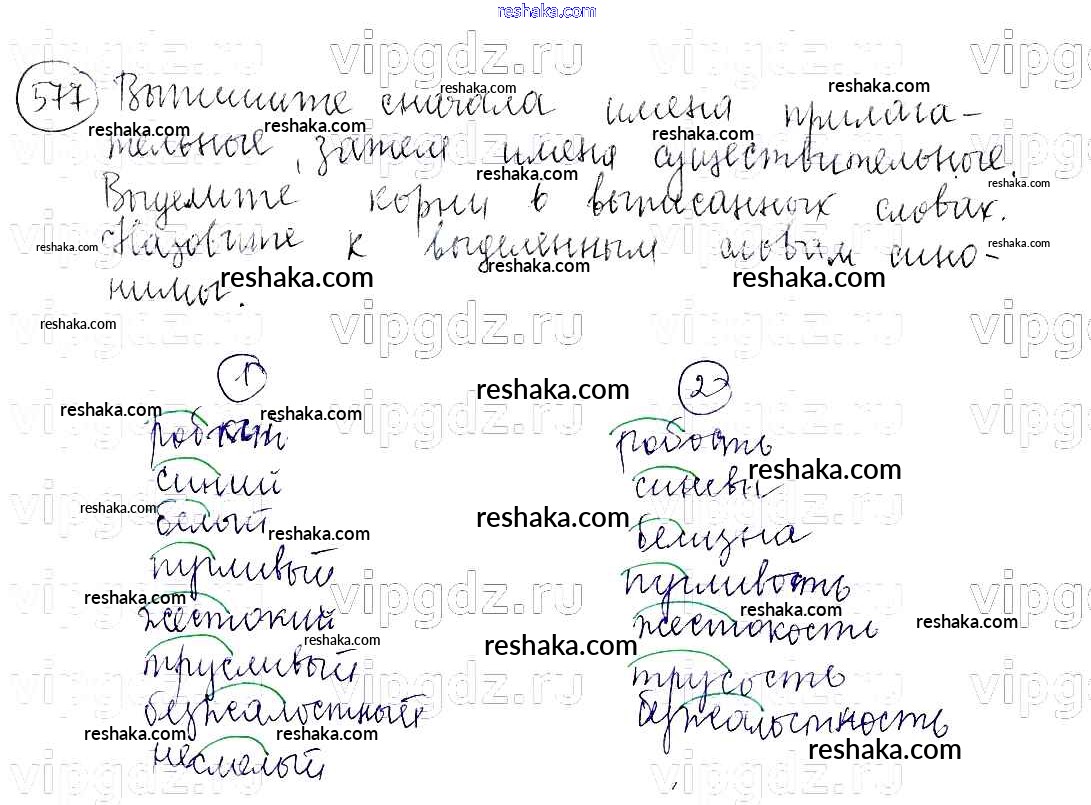 reshaka.com
577 Выпишите сначала имена прилага-
тельные, затем имена существительные.
Выделите корни в выписанных словах.
Назовите к выделенным словам сино-
нимы.
1 2
робкий робость
синий синева
белый белизна
пугливый пугливость
жестокий жестокость
трусливый трусость
безжалостный безжалостность
несмелый
vipgdz.ru